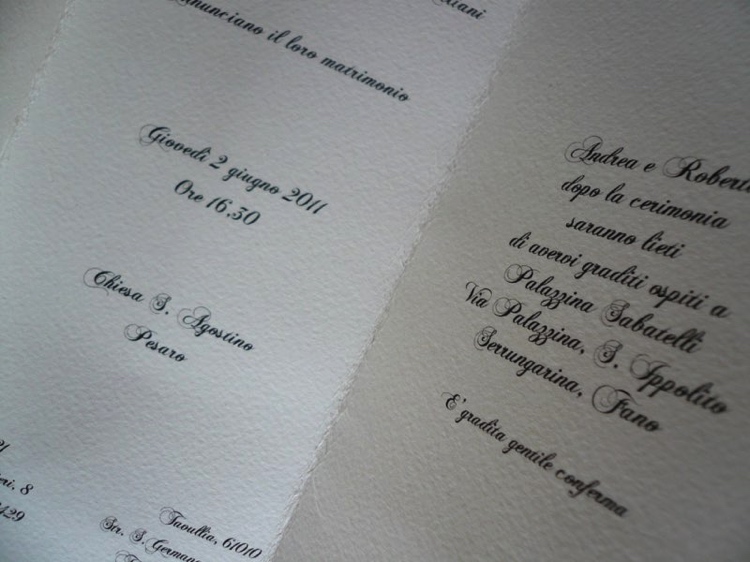 annunciano il loro matrimonio
Giovedì 2 giugno 2011
Ore 16,30
Chiesa S. Agostino
Pesaro
8
Tavullia, 61010
Str. S.
Andrea e
dopo la cerimonia
saranno lieti
di avervi graditi ospiti a
Palazzina Sabatelli
Via Palazzina, S. Ippolito
Serrungarina, Fano
E' gradita gentile conferma